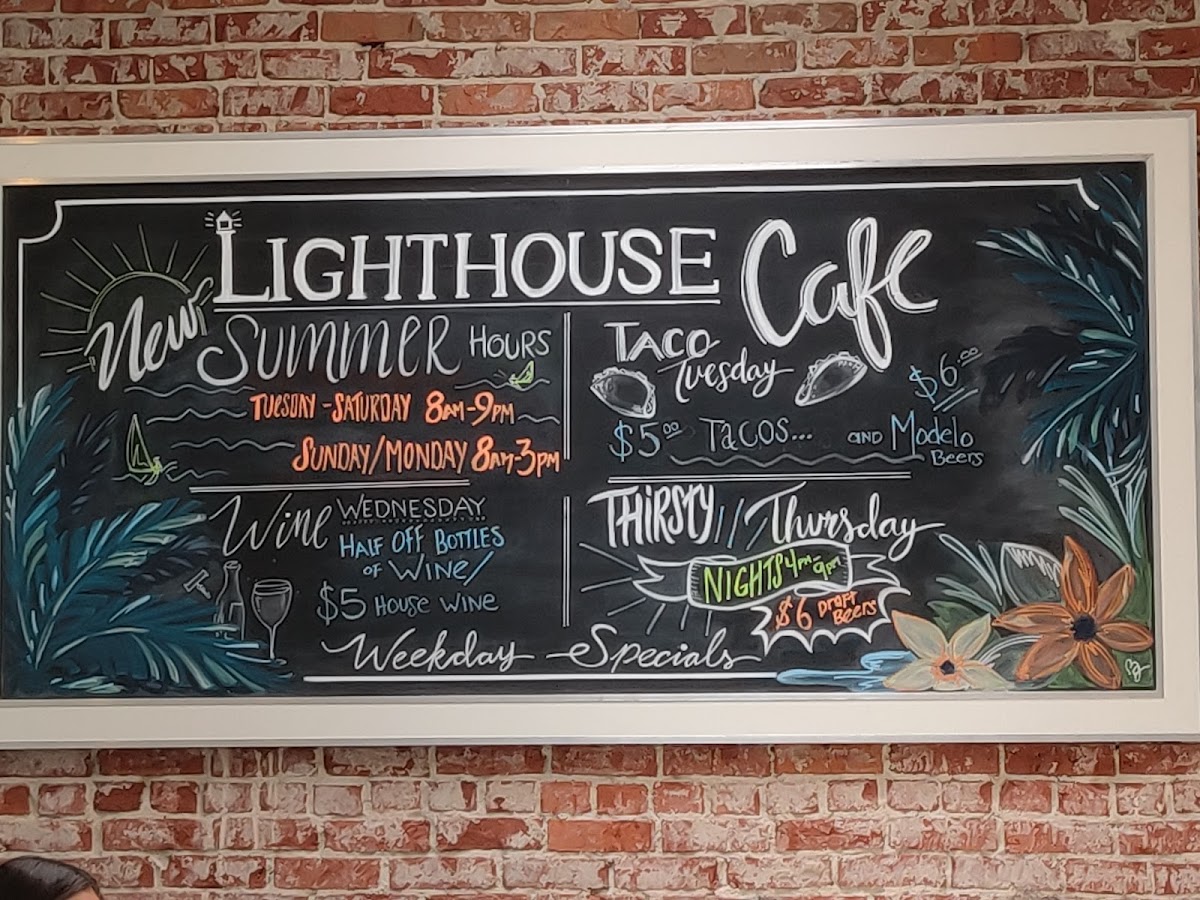 LIGHTHOUSE Cafe
New SUMMER HOURS
TUESDAY - SATURDAY 8AM-9PM
SUNDAY/MONDAY 8AM-3PM
TACO
Tuesday
$5.00 TACOS...
$6.00
AND Modelo
Beers
Wine WEDNESDAY
HALF OFF BOTTLES
OF WINE/
$5 HOUSE WINE
THIRSTY // Thursday
NIGHTS 4PM-9PM
$6 DRAFT
BEERS
Weekday Specials